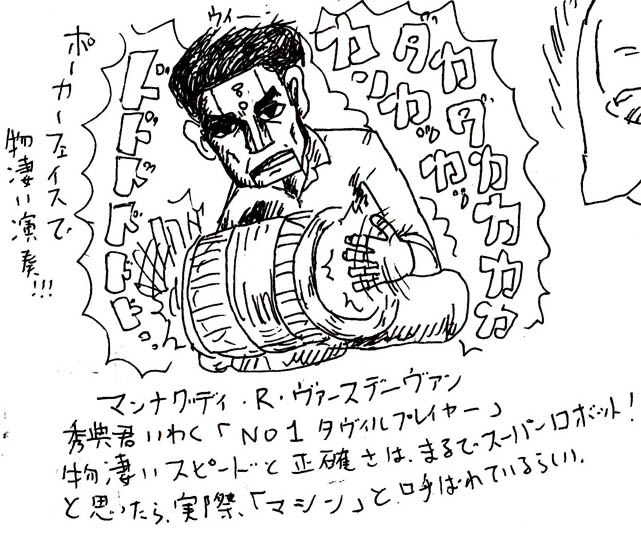 ウィーン
ポーカーフェイスで
物凄い演奏!!!
ドドドドドドド
カダカダカカカカカ
カンカ゛ッカ゛
マンナグッディ・R・ヴァースデーヴァン
秀典君いわく「NO1タヴィルプレイヤー」
物凄いスピードと正確さは、まるでスーパーロボット!
と思ったら、実際、「マシン」と呼ばれているらしい。